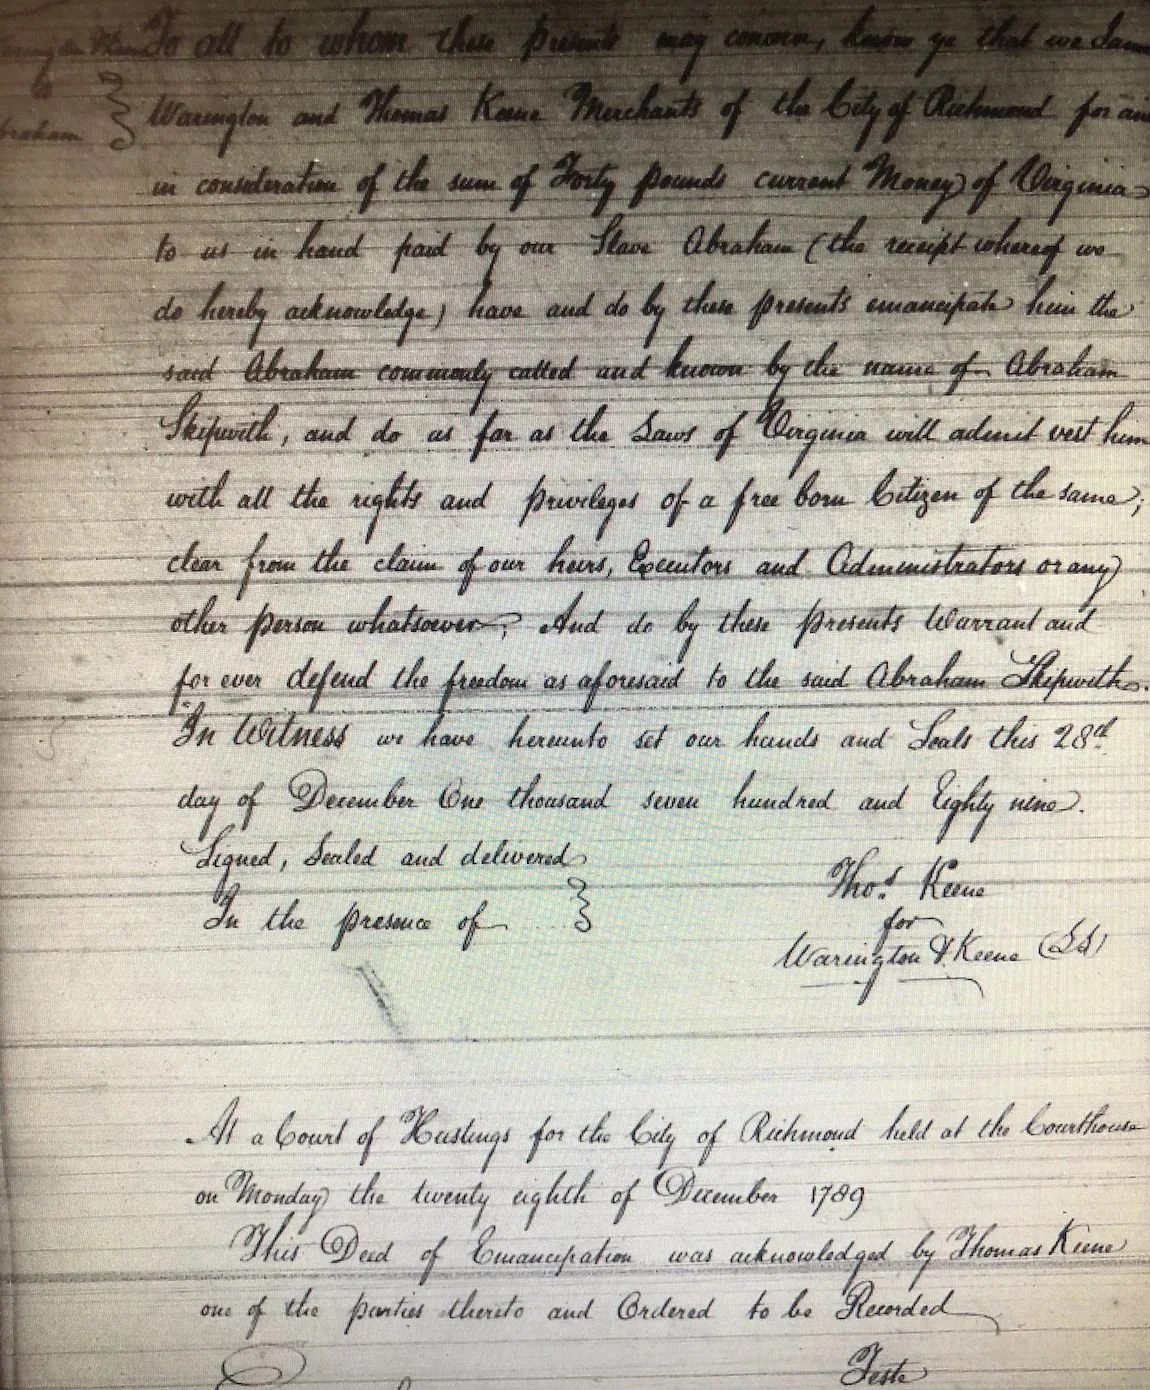 To all to whom these presents may concern, know ye that we
to
Warington and Thomas Keene Merchants of the City of Richmond for
in consideration of the sum of Forty pounds current Money of Virginia
to us in hand paid by our Slave Abraham (the receipt whereof we
do hereby acknowledge) have and do by these presents emancipate him the
said Abraham commonly called and known by the name of Abraham
Skipwith, and do as far as the Laws of Virginia will admit vest him
with all the rights and privileges of a free born Citizen of the same;
clear from the claim of our heirs, Executors and Administrators or any
other person whatsoever; And do by these presents Warrant and
for ever defend the freedom as aforesaid to the said Abraham Skipwith.
In Witness we have hereunto set our hands and Seals this 28th
day of December One thousand seven hundred and Eighty nine.
Signed, Sealed and delivered
In the presence of
Thos. Keene
for
Warington & Keene (LS)
At a Court of Hustings for the City of Richmond held at the Courthouse
on Monday the twenty eighth of December 1789
This Deed of Emancipation was acknowledged by Thomas Keene
one of the parties thereto and Ordered to be Recorded
Teste